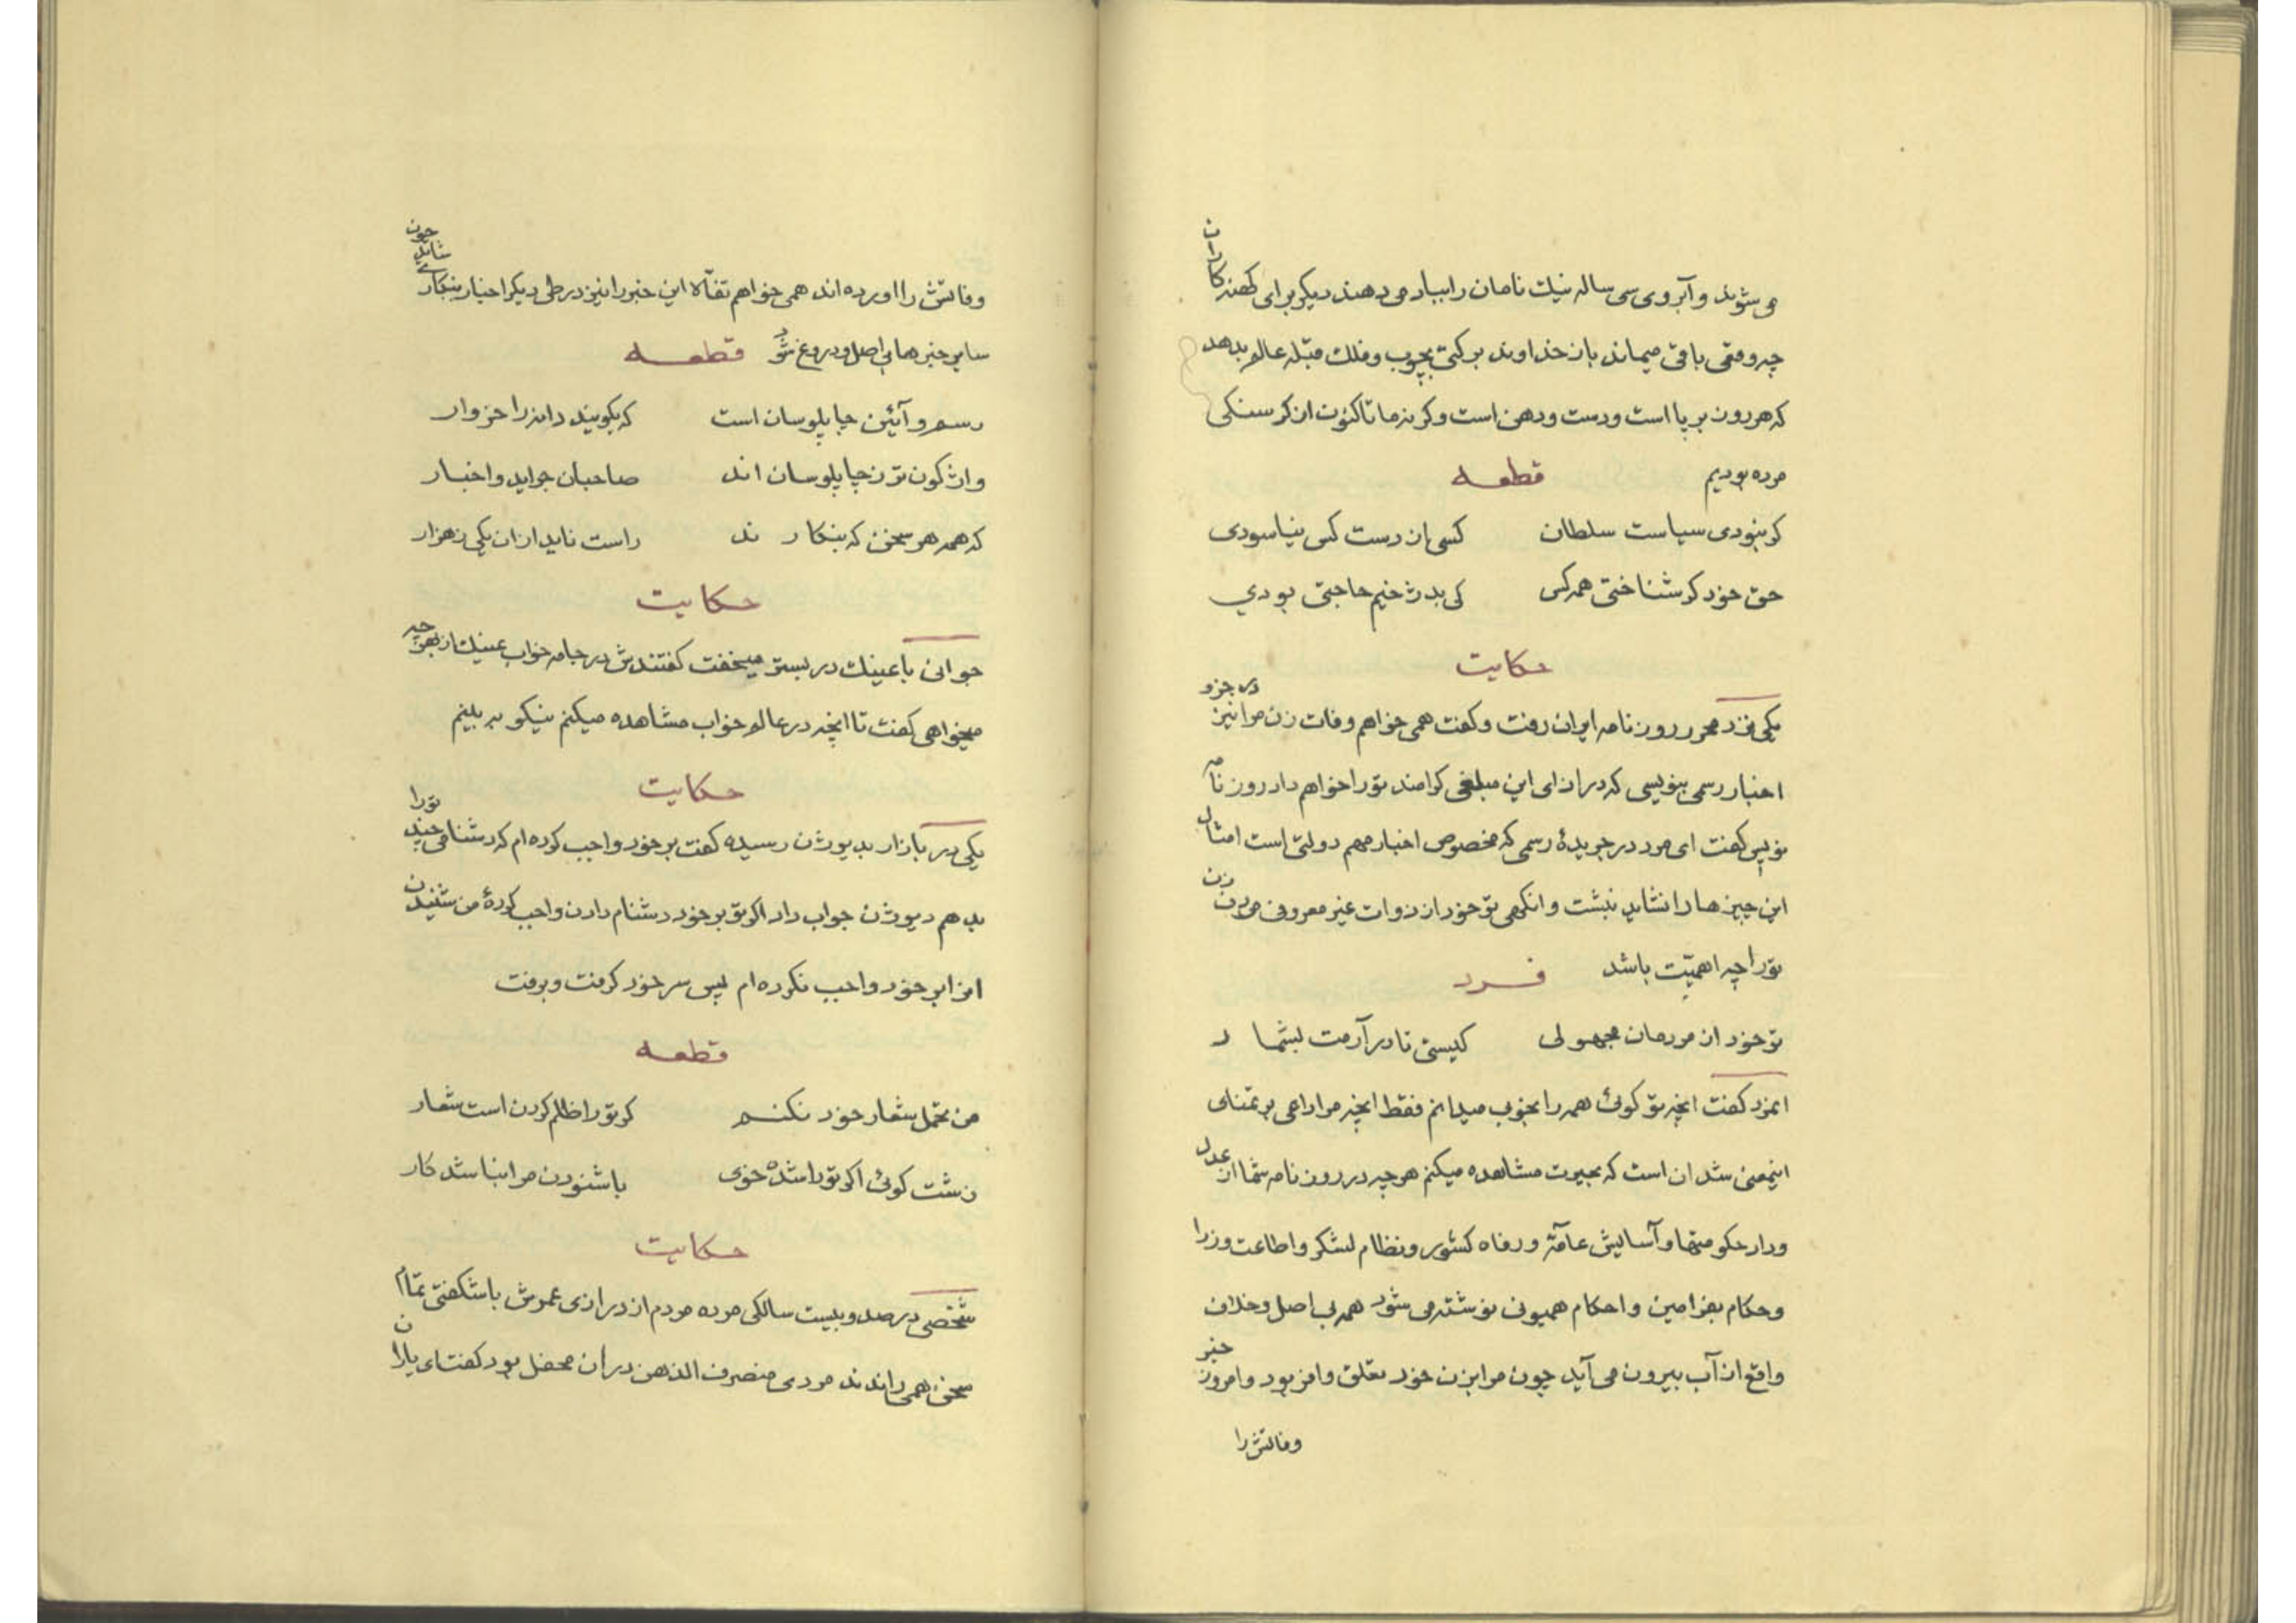 می شوند و آبروی سی ساله نیک نامان را بباد می دهند دیگر برای کهنه کاران
چه وقعی باقی میماند باز خداوند برکتی بچوب و فلک قبله عالم بدهد
که هر دون بر پا است و دست و دهن است و گرنه ما تا کنون از گرسنگی
مرده بودیم قطعه
گر نبودی سیاست سلطان کسی از دست کس نیاسودی
حق خود گر شناختی همه کس کی بدژخیم حاجتی بودی
حکایت
یکی نزد محرر روزنامه ایران رفت و گفت همی خواهم وفات زن مرا نیز در جزو
اخبار رسمی بنویسی که در ازای این مبلغی گرامند تو را خواهم داد روزنامه
نویس گفت ای مرد در جریدهٔ رسمی که مخصوص اخبار مهم دولتی است امثال
این چیزها را نشاید نبشت وانگهی تو خود از ذوات غیر معروفی مردن زن
تو را چه اهمیّت باشد فرد
تو خود از مردمان مجهولی کیستی تا در آرمت بشمار
آنمرد گفت انچه تو گوئی همه را بخوب میدانم فقط انچه مرا داعی بر تمنای
اینمعنی شد ان است که بعبرت مشاهده میکنم هر چه در روزنامه شما از عدل
وداد حکومتها و آسایش عامّه و رفاه کشور و نظام لشکر و اطاعت وزرا
و حکام بفرامین و احکام همیونی نوشته می شود همه بی اصل و خلاف
واقع از آب بیرون می آید چون مرا بزن خود تعلق وافر بود و امروز خبر
وفاتش را
وفاتش را اورده اند همی خواهم تفألا این خبر را نیز در طی دیگر اخبار بنگاری شاید چون
سایر خبرها بی اصل و دروغ شود قطعه
رسم و آئین چاپلوسان است که بگویند دانه را خروار
واژگون تر ز چاپلوسان اند صاحبان جراید و اخبار
که همه هر سخن که بنگارند راست ناید از ان یکی ز هزار
حکایت
جوانی با عینک در بستر میخفت گفتندش در جامه خواب عینک از بهر چه
میخواهی گفت تا انچه در عالم خواب مشاهده میکنم نیکو به بینم
حکایت
یکی در بازار بدیوژن رسیده گفت بر خود واجب کرده ام که دشنامی چند تو را
بدهم دیوژن جواب داد اگر تو بر خود دشنام دادن واجب کردهٔ من شنیدن
انرا بر خود واجب نکرده ام پس سر خود گرفت و برفت
قطعه
من تحمل شعار خود نکنم گر تو را ظلم کردن است شعار
زشت گوئی اگر تو را شده خوی با شنودن مرا نباشد کار
حکایت
شخصی در صد و بیست سالگی مرده مردم از درازی عمرش با شگفتی تمام
سخن همی راندند مردی منصرف الذهن در ان محفل بود گفت ای یاران